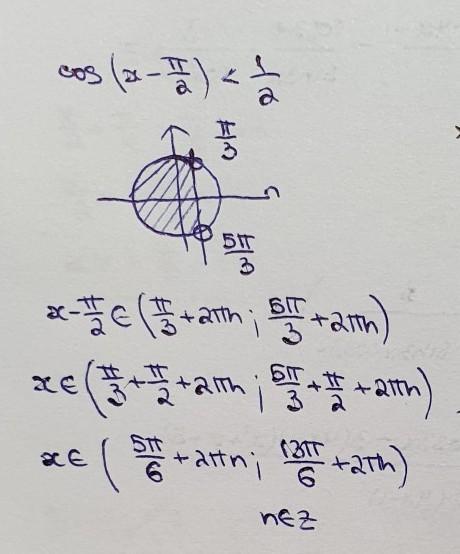 cos(x-π/2) < 1/2
π/3
5π/3
x-π/2 ∈ (π/3+2πn; 5π/3+2πn)
x∈(π/3+π/2+2πn; 5π/3+π/2+2πn)
x∈(5π/6+2πn; 13π/6+2πn)
n∈z